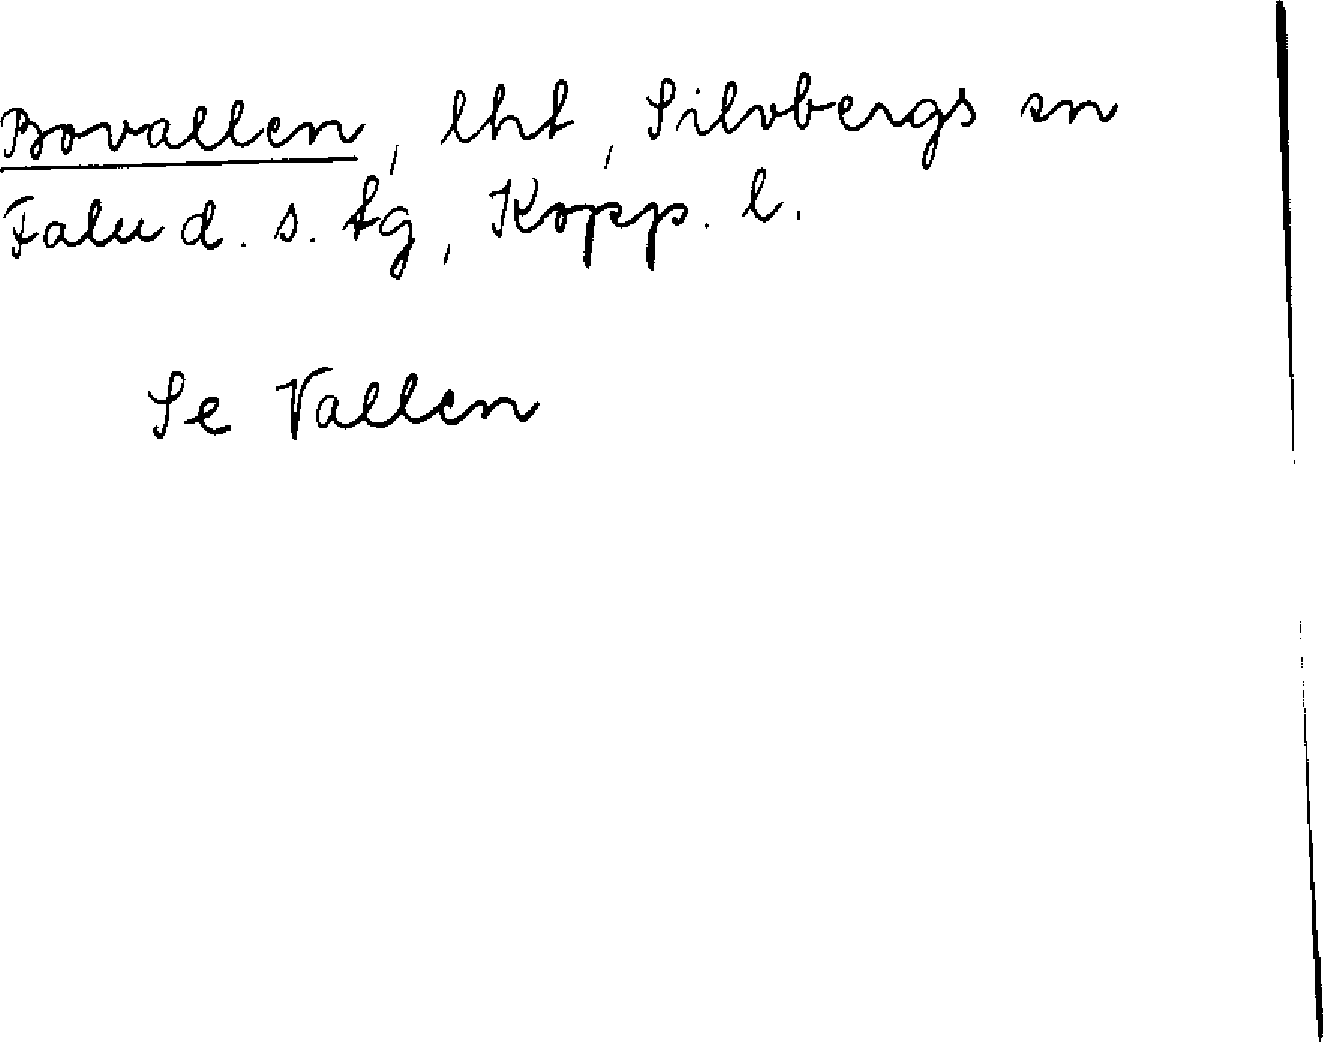 Bovallen, lht, Silvbergs sn
Falu d. s. tg, Kopp. l.
Se Vallen